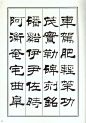 車駕肥輕策功
茂實勒碑刻銘
磻溪伊尹佐時
阿衡奄宅曲阜